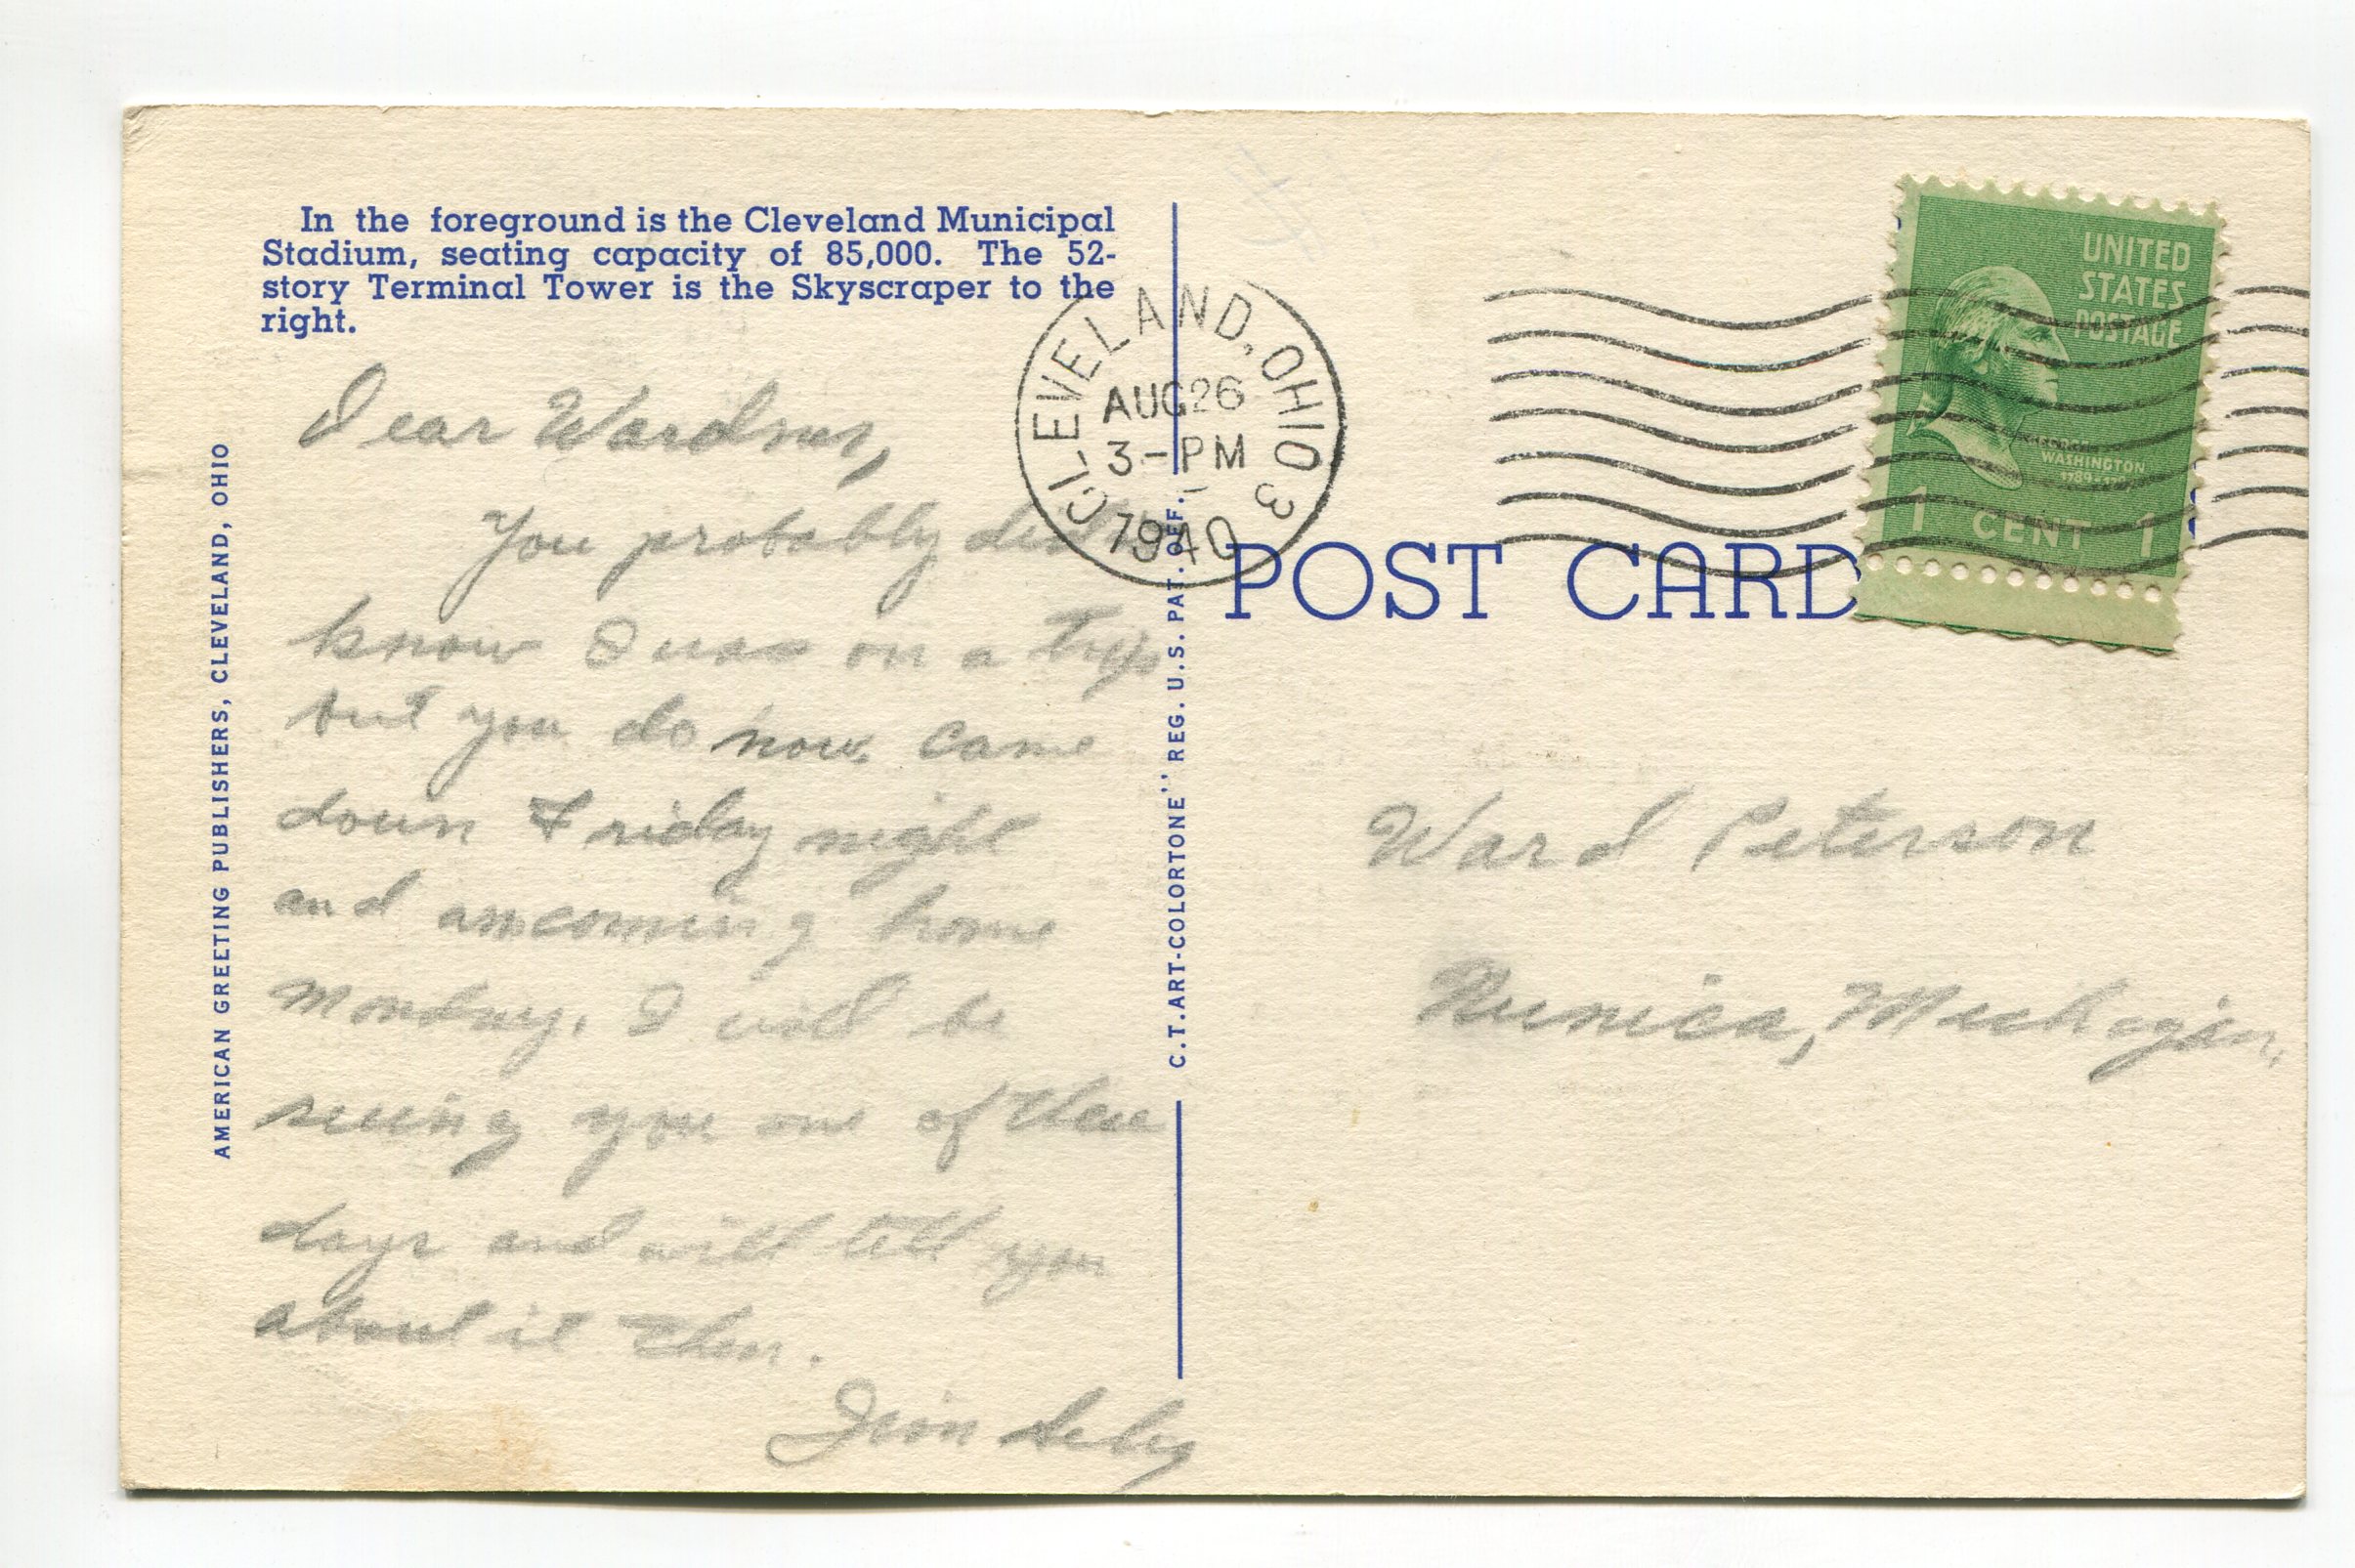 In the foreground is the Cleveland Municipal
Stadium, seating capacity of 85,000. The 52-
story Terminal Tower is the Skyscraper to the
right.
Dear
You probably
know I was on a trip
but you do now. Came
down Friday night
and am coming home
Monday. I will be
seeing you one of these
days and will tell you
about it then.
Jim
AMERICAN GREETING PUBLISHERS, CLEVELAND, OHIO
C.T. ART-COLORTONE" REG. U.S. PAT. OFF.
CLEVELAND, OHIO 3
AUG 26
3-PM
1940
POST CARD
UNITED
STATES
POSTAGE
GEORGE
WASHINGTON
1 CENT 1
Ward Peterson
Nunica, Michigan.